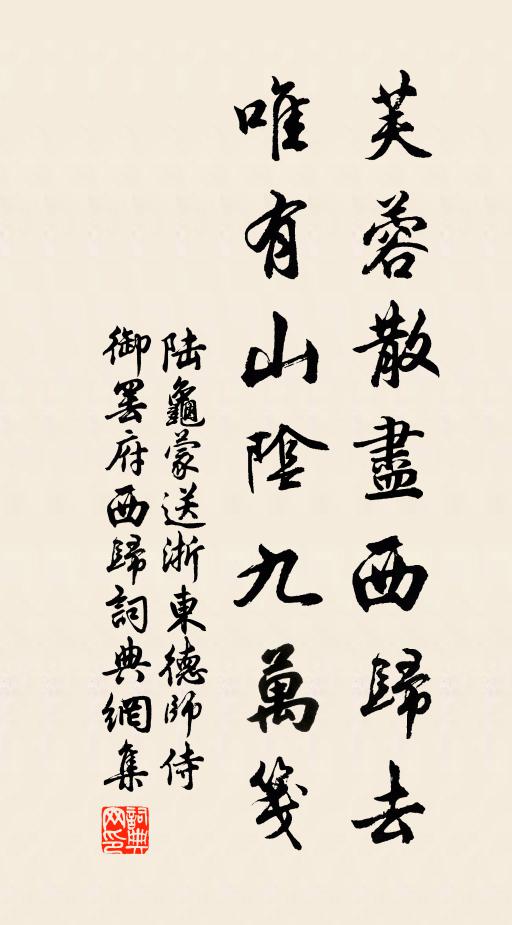 芙蓉散盡西歸去
唯有山陰九萬箋
陆龜蒙送浙東德師侍
御罢府西歸詞典網集
詞典网印